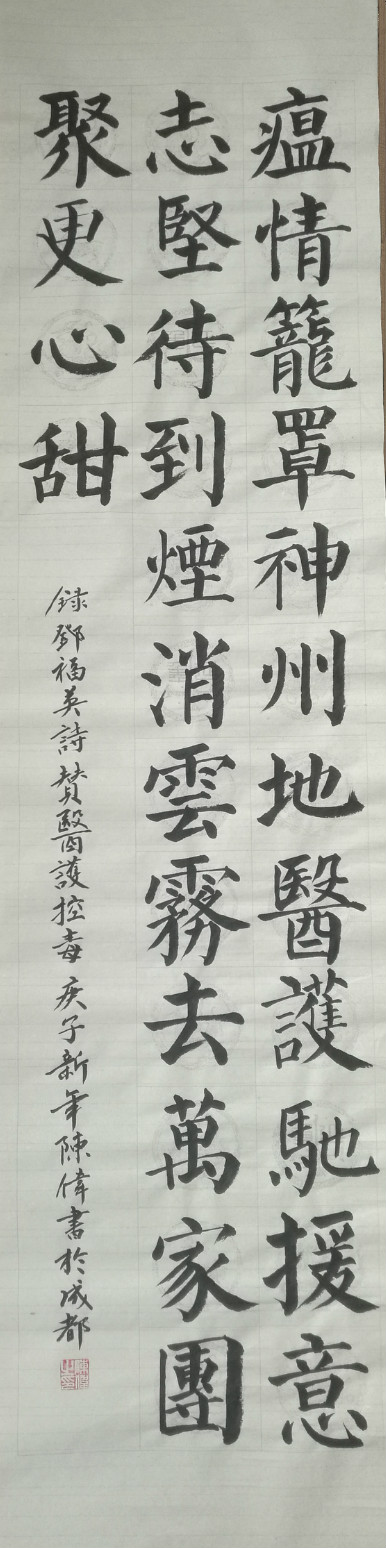 瘟情籠罩神州地醫護馳援意
志堅待到煙消雲霧去萬家團
聚更心甜
録鄧福英詩賛醫護控毒庚子新年陳偉書於成都